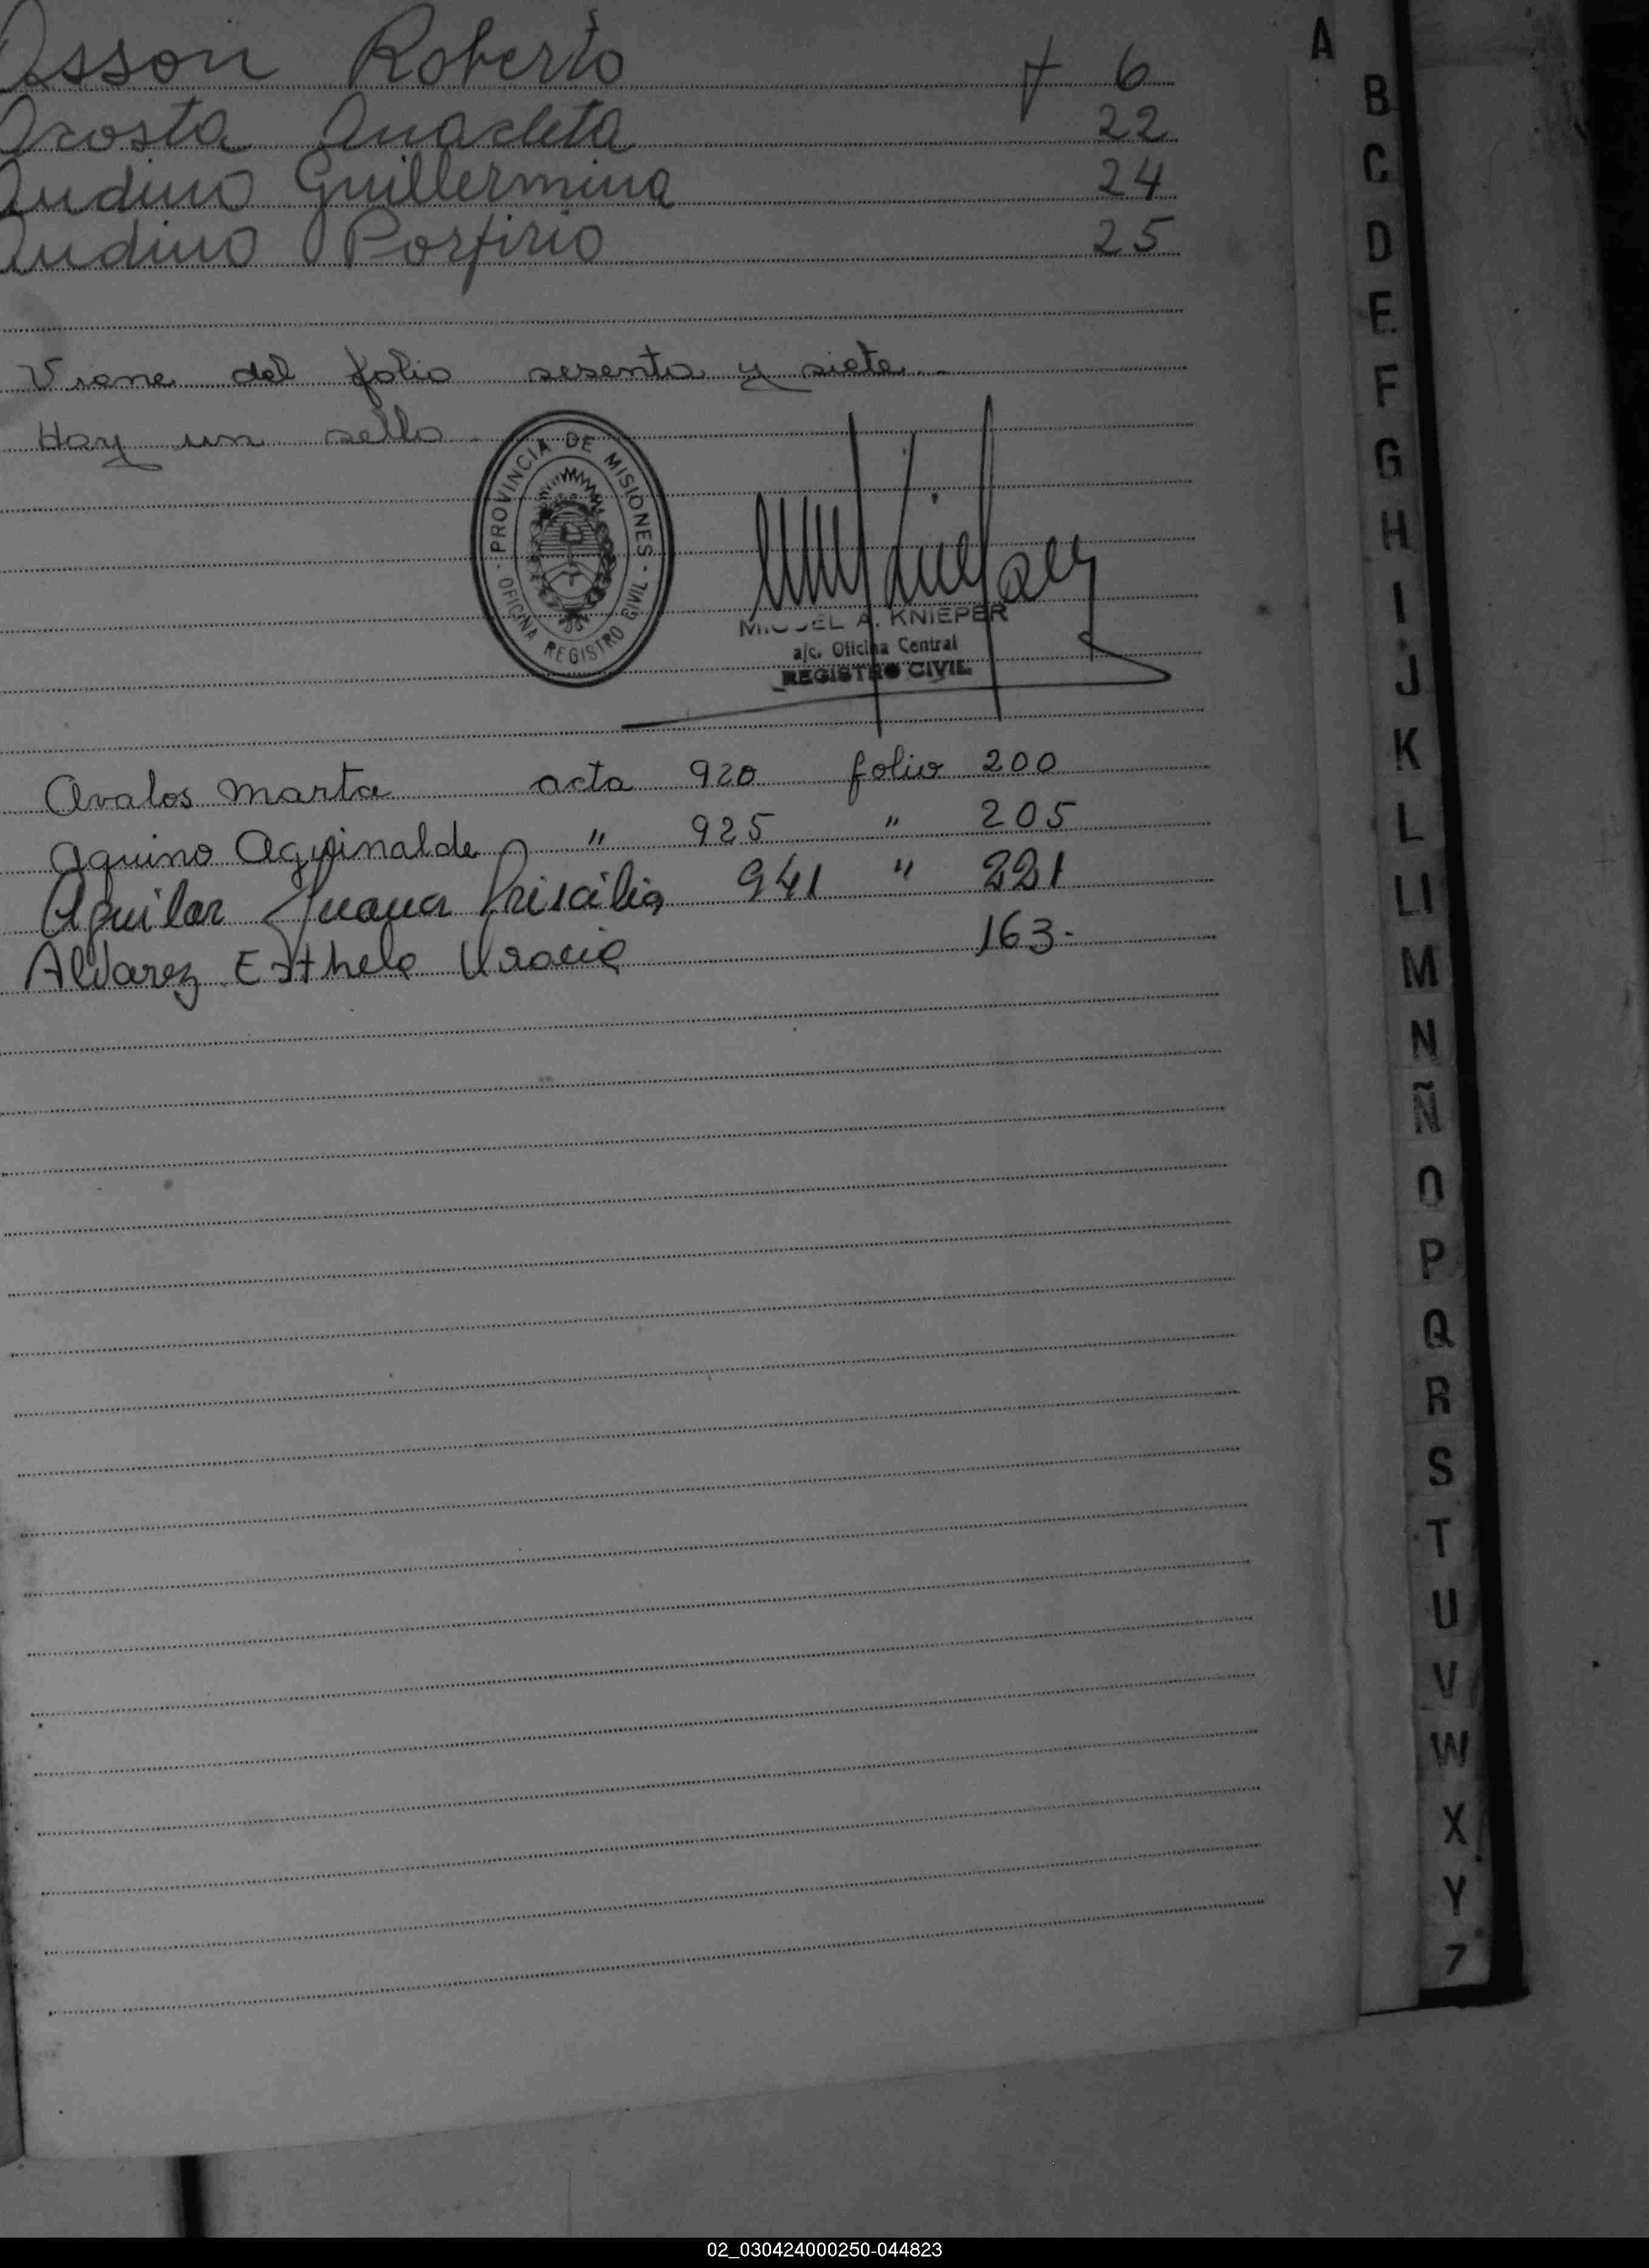 Asson Roberto + 6
Acosta Anacleta 22
Audino Guillermina 24
Audino Porfirio 25
Viene del folio sesenta y siete.-
Hay un sello.-
PROVINCIA DE MISIONES
OFICINA REGISTRO CIVIL
MIGUEL A. KNIEPER
a/c. Oficina Central
REGISTRO CIVIL
Avalos Marta acta 920 folio 200
Aquino Aguinalde " 925 " 205
Aguilar Juana Priscilia 941 " 221
Alvarez Esthela 163.-
A
B
C
D
E
F
G
H
I
J
K
L
Ll
M
N
Ñ
O
P
Q
R
S
T
U
V
W
X
Y
Z
02_030424000250-044823